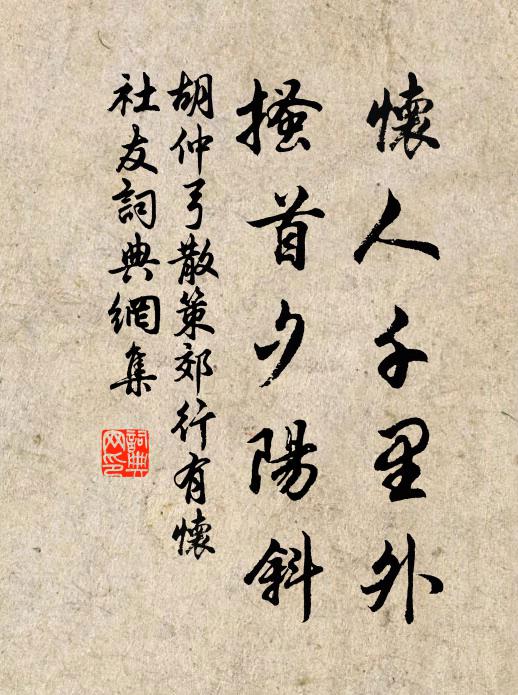 懷人千里外
搔首夕陽斜
胡仲弓散策郊行有懷
社友詞典網集
詞典
网印